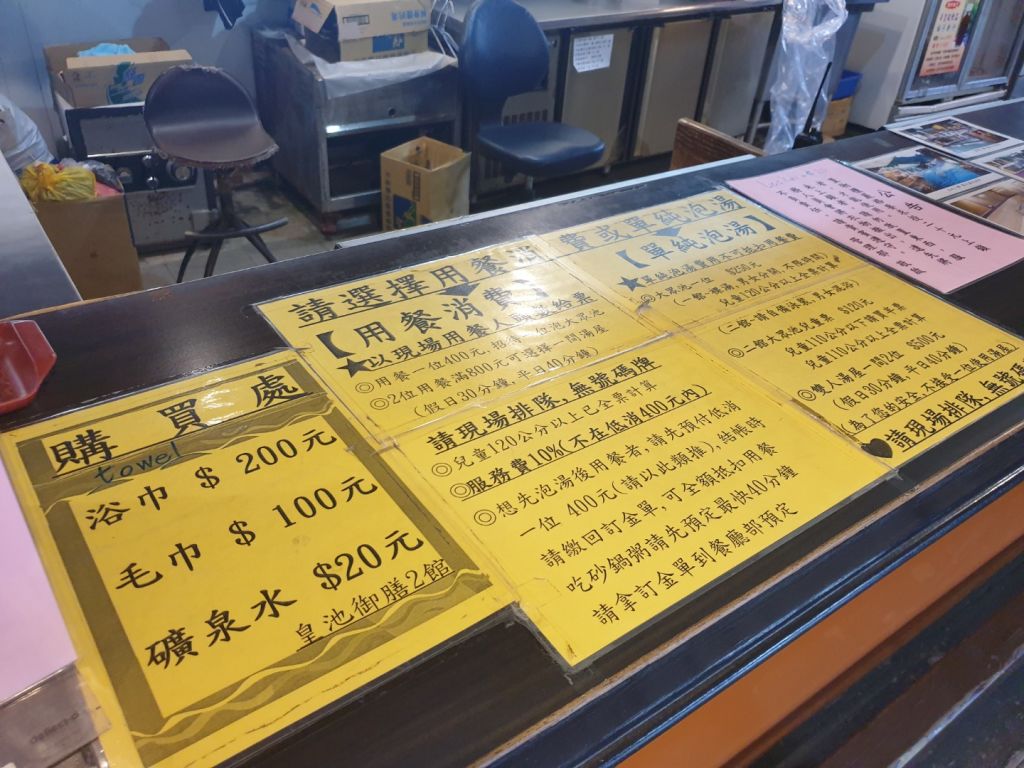 購買處
towel
浴巾 $ 200元
毛巾 $ 100元
礦泉水 $20元
皇池御膳2館
請選擇用餐消費或單純泡湯
【用餐消費】
★以現場用餐人
給票
◎用餐一位400元, 招待一位泡大眾池
◎2位用餐滿800元可選擇一間湯屋
(假日30分鐘, 平日40分鐘)
請現場排隊, 無號碼牌
◎兒童120公分以上已全票計算
◎服務費10%(不在低消400元內)
◎想先泡湯後用餐者, 請先預付低消
一位 400元(請以此類推), 結帳時
請繳回訂金單, 可全額抵扣用餐
吃砂鍋粥請先預定最快40分鐘
請拿訂金單到餐廳部預定
【單純泡湯】
★單純泡湯費用不可抵扣用餐費
◎大眾池一位 $250元
(一館-裸湯, 男女分開, 不限時間)
兒童120公分以上全票計算
(二館-請自備泳裝, 男女混浴)
◎二館大眾池兒童票 $120元
兒童110公分以下購買半票
兒童110公分以上全票計算
◎雙人湯屋一間2位 $500元
(假日30分鐘, 平日40分鐘)
(為了您的安全, 不接受一位使用湯屋)
請現場排隊, 無號碼
公告